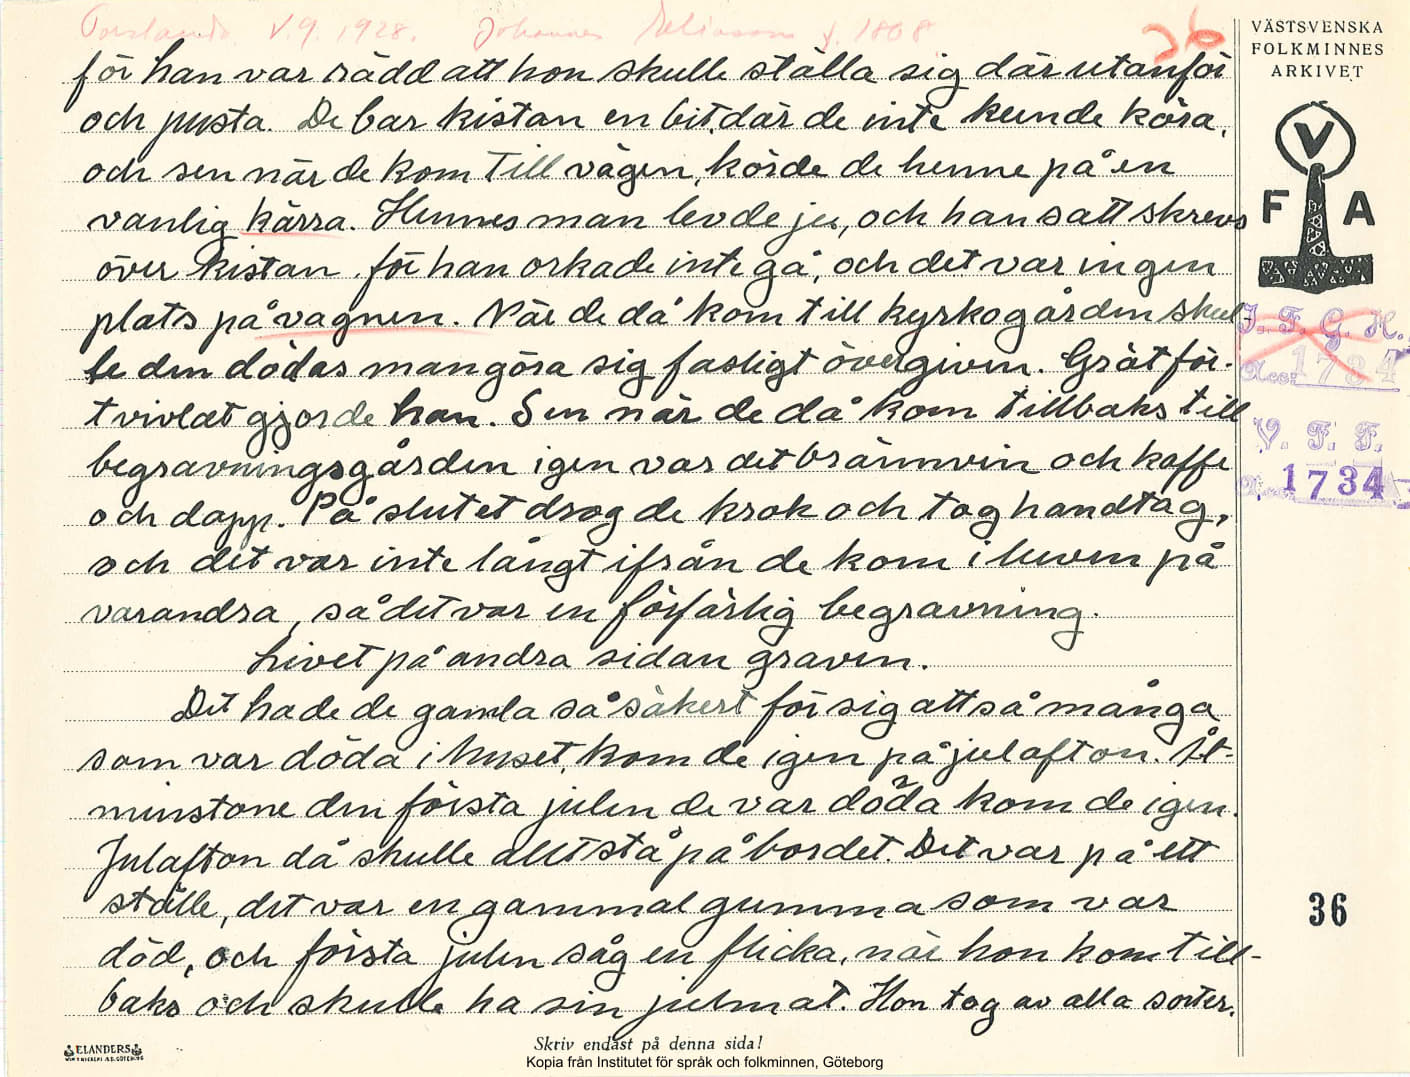 V. 9. 1928. Johannes
26
för han var rädd att hon skulle ställa sig där utanför
och pusta. De bar kistan en bit, där de inte kunde köra,
och sen när de kom till vägen, körde de henne på en
vanlig kärra. Hennes man levde ju, och han satt skrevs
över kistan för han orkade inte gå, och det var ingen
plats på vagnen. När de då kom till kyrkogården skul-
le den dödas man göra sig fasligt övergiven. Gråt för-
tvivlat gjorde han. Sen när de då kom tillbaks till
begravningsgården igen var det brännvin och kaffe
och dopp. På slutet drog de krok och tog handtag,
och det var inte långt ifrån de kom i luven på
varandra, så det var en förfärlig begravning.
Livet på andra sidan graven.
Det hade de gamla så säkert för sig att så många
som var döda i huset, kom de igen på julafton. Åt-
minstone den första julen de var döda kom de igen.
Julafton då skulle allt stå på bordet. Det var på ett
ställe, det var en gammal gumma som var
död, och första julen såg en flicka, när hon kom till-
baks och skulle ha sin julmat. Hon tog av alla sorter.
VÄSTSVENSKA
FOLKMINNES
ARKIVET
V
F A
I. F. G. H.
Acc: 1734
V. F. F.
1734
36
ELANDERS
Skriv endast på denna sida!
Kopia från Institutet för språk och folkminnen, Göteborg